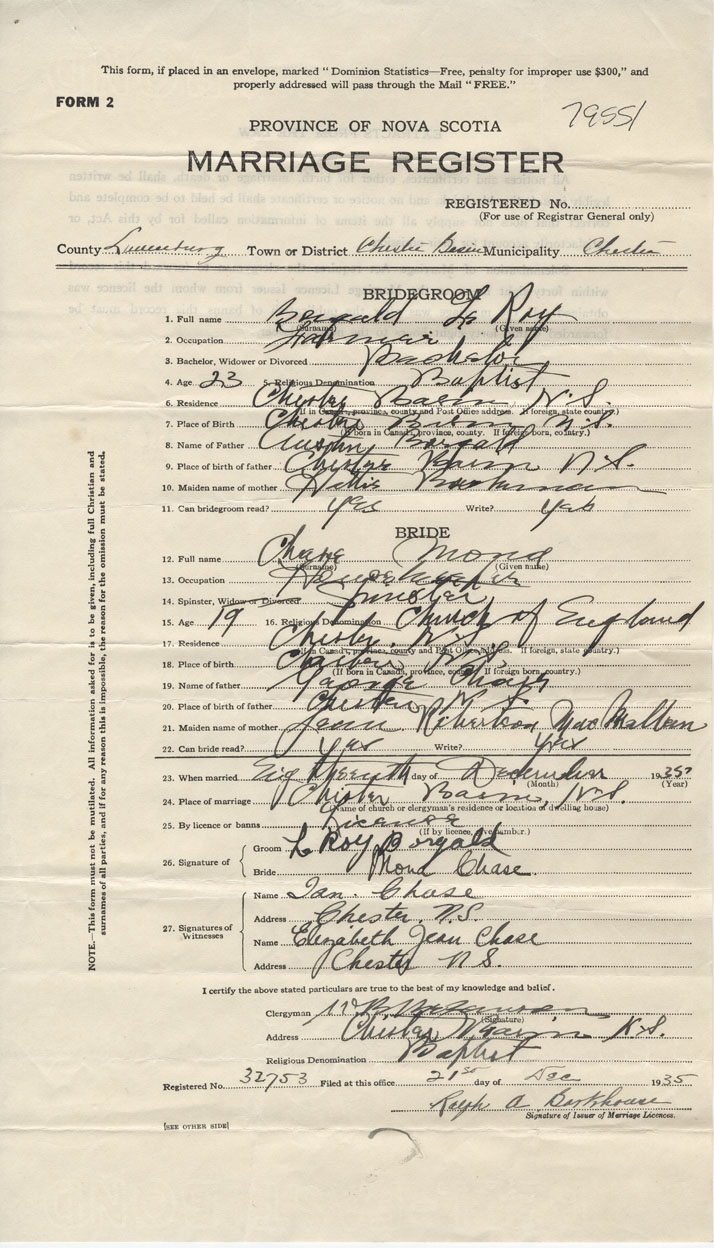 This form, if placed in an envelope, marked " Dominion Statistics—Free, penalty for improper use $300," and
properly addressed will pass through the Mail " FREE."
FORM 2
79551
PROVINCE OF NOVA SCOTIA
MARRIAGE REGISTER
REGISTERED No.
(For use of Registrar General only)
County Lunenburg Town or District Chester Basin Municipality Chester
BRIDEGROOM
1. Full name Borgald Le Roy
(Surname) (Given name)
2. Occupation Farmer
3. Bachelor, Widower or Divorced Bachelor
4. Age 23 5. Religious Denomination Baptist
6. Residence Chester Basin N.S.
(If in Canada, province, county and Post Office address. If foreign, state country.)
7. Place of Birth Chester Basin N.S.
(If born in Canada, province, county. If foreign born, country.)
8. Name of Father Austin Borgald
9. Place of birth of father Chester Basin N.S.
10. Maiden name of mother
11. Can bridegroom read? yes Write? yes
BRIDE
12. Full name Chase Mona
(Surname) (Given name)
13. Occupation Housekeeper
14. Spinster, Widow or Divorced Spinster
15. Age 19 16. Religious Denomination Church of England
17. Residence Chester, N.S.
(If in Canada, province, county and Post Office address. If foreign, state country.)
18. Place of birth Chester N.S.
(If born in Canada, province, county. If foreign born, country.)
19. Name of father George Chase
20. Place of birth of father Chester N.S.
21. Maiden name of mother Jean Robertson Mac
22. Can bride read? Yes Write? Yes
23. When married Eighteenth day of December 1935
(Month) (Year)
24. Place of marriage Chester Basin, N.S.
(Name of church or clergyman's residence or location of dwelling house)
25. By licence or banns License
(If by licence, give number.)
26. Signature of
Groom Le Roy Borgald
Bride Mona Chase
27. Signatures of Witnesses
Name Ian Chase
Address Chester, N.S.
Name Elizabeth Jean Chase
Address Chester N.S.
I certify the above stated particulars are true to the best of my knowledge and belief.
Clergyman
(Signature)
Address Chester Basin N.S.
Religious Denomination Baptist
Registered No. 32753 Filed at this office 21st day of Dec 1935
Ralph A. Barkhouse
Signature of Issuer of Marriage Licences.
[SEE OTHER SIDE]
NOTE.—This form must not be mutilated. All information asked for is to be given, including full Christian and
surnames of all parties, and if for any reason this is impossible, the reason for the omission must be stated.